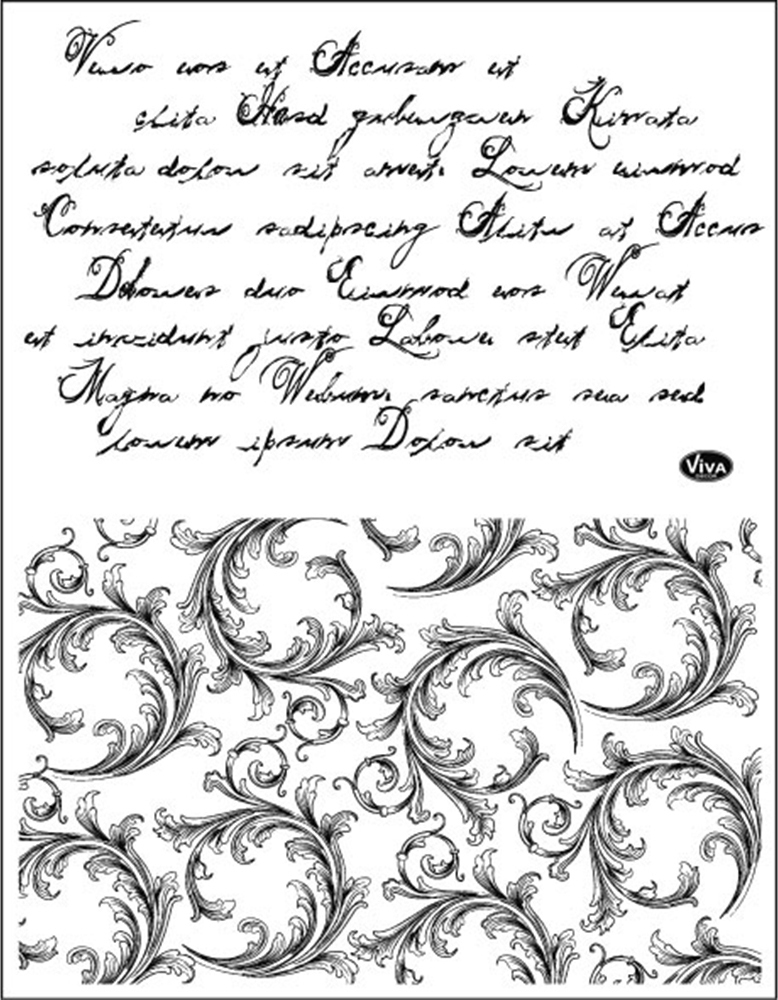 Vero eos et Accusam et
clita Kasd gubergren Kimata
soluta dolor sit amet. Lorem eiusmod
Consetetur sadipscing Alitu at Accus
Dolores duo Eiusmod eos Werat
et incidunt justo Labore stet Elita
Magna no Rebum. sanctus sea sed
lorem ipsum Dolor sit
VIVA